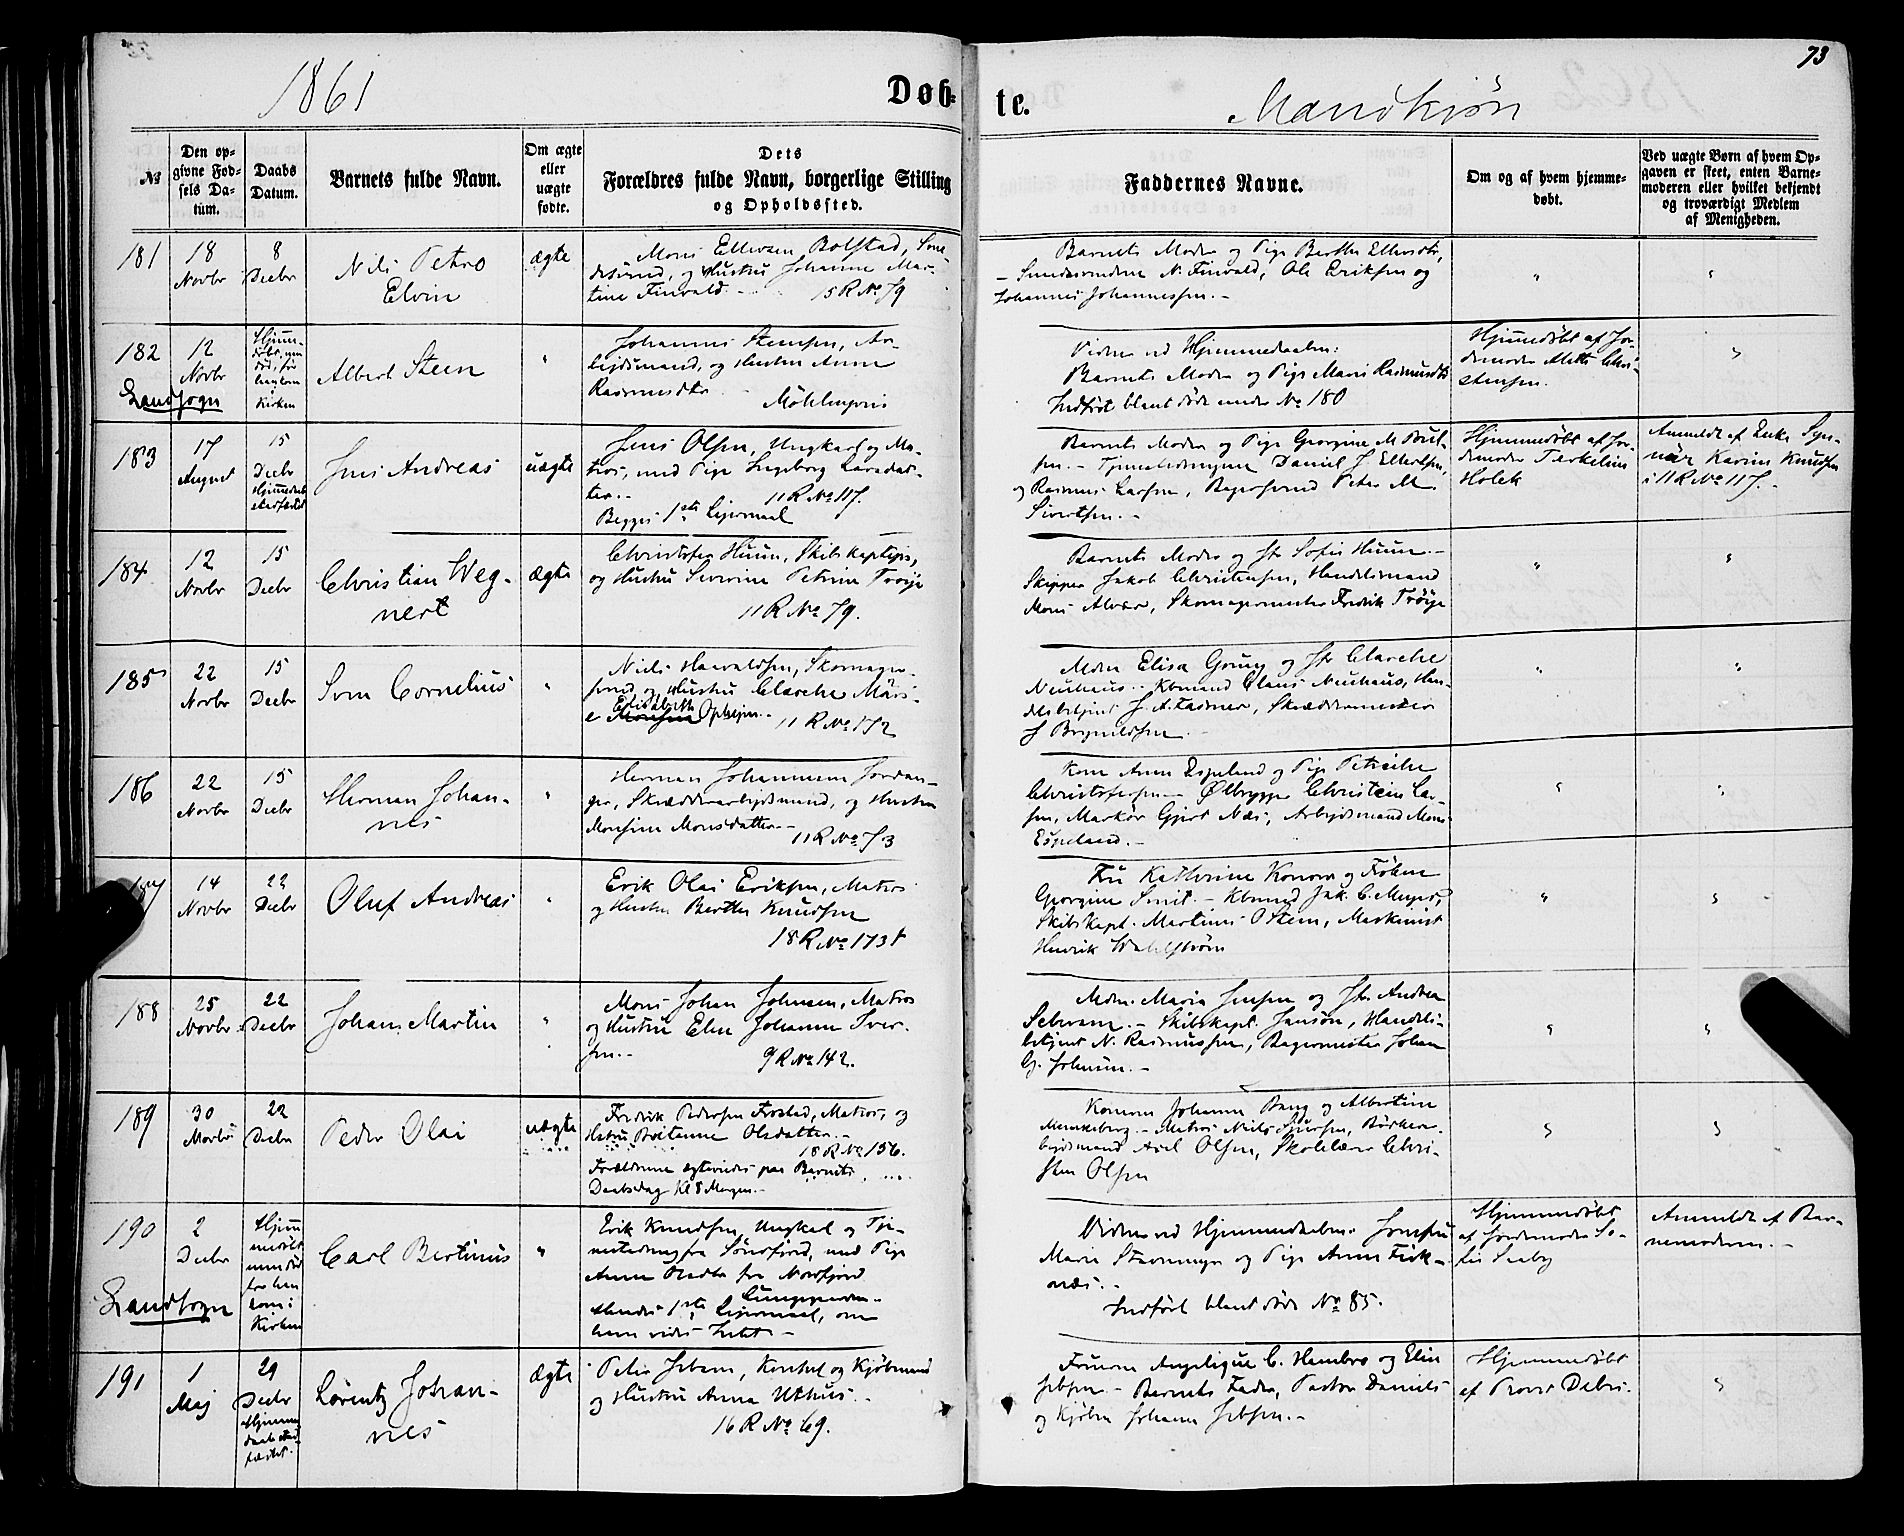 73
1861
Døb-
te.
Mandkjøn
№
Den op-
givne Fød-
sels Da-
tum.
Daabs
Datum.
Barnets fulde Navn.
Om ægte
eller
uægte
fødte.
Dets
Forældres fulde Navn, borgerlige Stilling
og Opholdssted.
Faddernes Navne.
Om og af hvem hjemme-
døbt.
Ved uægte Børn af hvem Op-
gaven er skeet, enten Barne-
moderen eller hvilket bekjendt
og troværdigt Medlem
af Menigheden.
181
18
Novbr
8
Decbr
Nils Petro
Elvin
ægte
Mons Ellersen Bolstad,
og Hustru Johanne Mar-
tine Finvald.
15 R No 79
Barnets Moder og Pige Berthe
N. Finvald, Ole Eriksen og
Johannes Johannessen.
182
12
Novbr
Landsogn
Hjem-
døbt,
død, før
Kirken
Albert Steen
"
Johannes Stensen, Ar-
bejdsmand, og Hustru Anne
Rasmusdtr
Møhlenpris
Vidner ved Hjemmedaaben:
Barnets Moder og Pige Marie Rasmusdtr
Indført blant døde under No 180
Hjemmedøbt af Jor-
demoder Mette Chri-
stensen.
"
183
17
August
15
Decbr
Hjemmedaab
stadfæstet
Jens Andreas
uægte
Jens Olsen, Ungkarl og Ma-
tros, med Pige Ingeborg Larsdat-
ter.
11 R No 117.
Begges 1ste Lejermaal
Barnets Moder og Pige Georgine M
Tjenestedrengene Daniel J. Ellertsen,
og Rasmus Larsen, Bagersvend Peter M.
Sivertsen.
Hjemmedøbt af Jor-
demoder Terkeline
Holck
Anmeldt af Enke
Karine Knudsen
i 11 R No 117.
184
12
Novbr
15
Decbr
Christian Weg-
nert
ægte
Christofer Huun, Skibskaptejn,
og Hustru Severine Petrine Trøye
11 R No 79.
Barnets Moder og Jfr Sofie Huun.
Skipper Jakob Christensen, Handelsmand
Mons Alvær, Skomagermester Fredrik Trøye
"
"
185
22
Novbr
15
Decbr
Sven Cornelius
"
Niels Haavaldsen, Skomager-
svend og Hustru Clarche Mari-
e Elisabeth Ophejm.
11 R No 172
Mdm Elisa Gruny og Jfr Clarche
Neuhaus. Kbmand Claus Neuhaus, Han-
delsbetjent J. A. Fasmer, Skræddermester
J Brynildsen.
"
"
186
22
Novbr
15
Decbr
Herman Johan-
nes
"
Herman Johannesen Jordan-
ger, Skrædderarbejdsmand, og Hustru
Monsine Monsdatter.
11 R No 73
Kone Anne Espeland og Pige Petriche
Christofersen. Ølbrygger Christen Lar-
sen, Markør Gjert Næs, Arbejdsmand Mons
Espeland.
"
"
187
14
Novbr
22
Decbr
Oluf Andreas
"
Erik Olai Eriksen, Matros
og Hustru Berthe Knudsen
18 R No 173
Fru Kathrine Konow og Frøken
Georgine Smit. Kbmand Jak. C. Meyer,
Skibskapt. Martinus Ostern, Maskinist
Henrik Wahlstrøm
"
"
188
25
Novbr
22
Decbr
Johan Martin
"
Mons Johan Johnsen, Matros
og Hustru Elen Johanne Sver-
sen.
9 R No 142.
Mdm. Maria Jensen og Jfr. Andrea
Schram. Skibskapt. Janson, Handels-
betjent N. Rasmussen, Bagermester Johan
G. Johnsen.
"
"
189
30
Novbr
22
Decbr
Peder Olai
uægte
Fredrik Pedersen Frostad, Matros, og
Hstru Britanne Olsdatter.
18 R No 156.
Forældrene egteviedes paa Barnets
Daabsdag Kl 8 Morgen.
Konerne Johanne Bang og Albertine
Munkeberg. Matros Niels Sjursen,
Axel Olsen, Skolelærer Chri-
sten Olsen
"
"
190
2
Decbr
Landsogn
Hjem
medøbt
men død
før han
kom i
Kirken
Carl Bertinus
"
Erik Knudsen, Ungkarl og Tje-
nestedreng fra Søndfjord, med Pige
Anne Olsdtr fra Nordfjord
Hendes 1ste Lejermaal, om
ham vides Intet
Vidner ved Hjemmedaaben: Jomfru
Marie Stavnmyr og Pige Anne Fisk-
næs.
Indført blant døde No 85.
Hjemmedøbt
af Jordemoder So-
fie Seeby
Anmeldt af Bar-
nemoderen.
191
1
Maj
29
Decbr
Hjemme
daab stad-
fæstet.
Lorentz Johan-
nes
ægte
Peter Jebsen, Konsul og Kjøbmand
og Hustru Anna Uthus.
16 R No 69.
Fruerne Angelique C. Hambro og Elin
Jebsen. Barnets Fader, Pastor Daniels
og Kjøbm Johann Jebsen.
Hjemmedøbt
af Provst Debes.
"